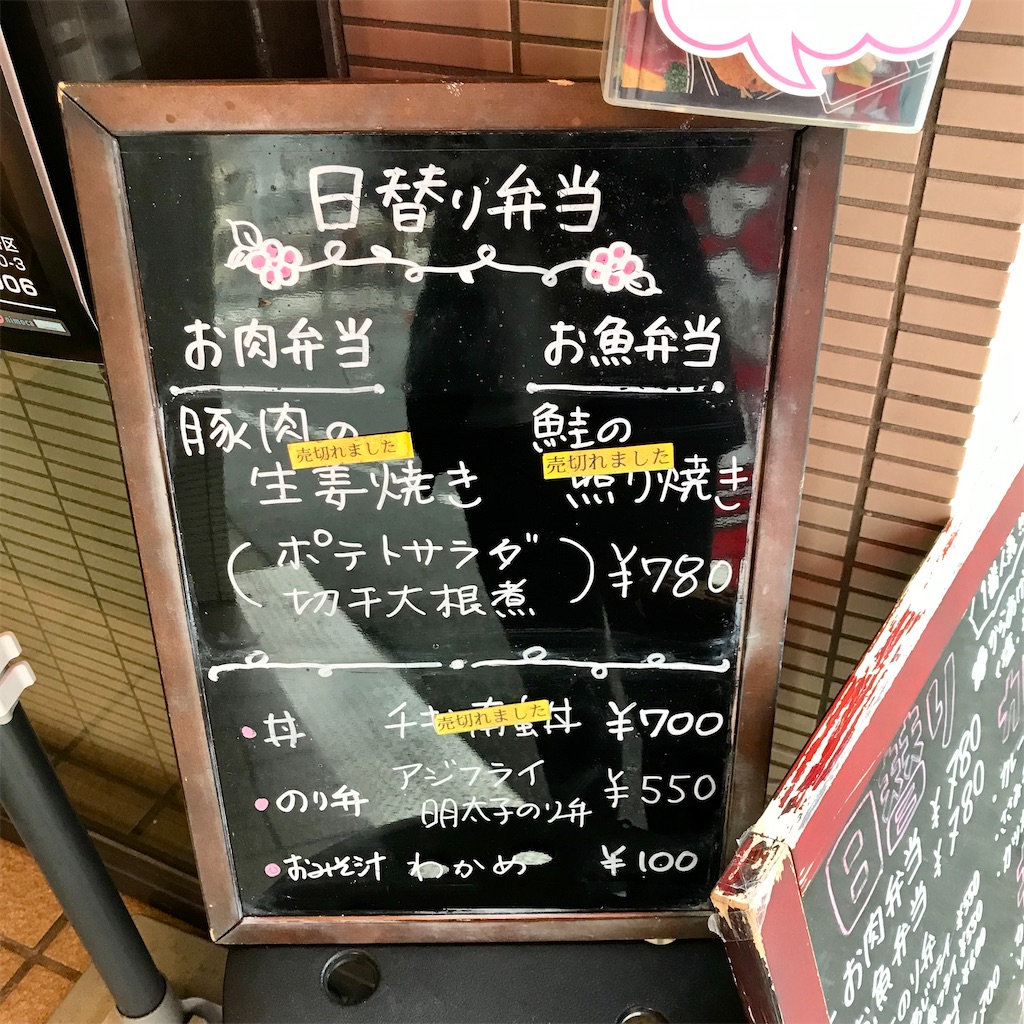 日替り弁当
お肉弁当
豚肉の
売切れました
生姜焼き
お魚弁当
鮭の
売切れました
照り焼き
(ポテトサラダ
切干大根煮) ¥780
・丼 チキン南蛮丼 ¥700
売切れました
・のり弁 アジフライ
明太子のり弁 ¥550
・おみそ汁 わかめ ¥100
区
0-3
006
nimoca
日替り
お肉弁当 ¥780
お魚弁当 ¥780
のり弁